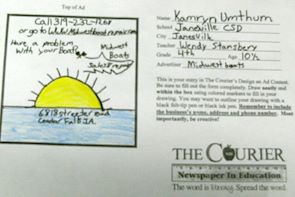 Top of Ad
Call 319-232-1268
or go to
Have a problem
with your boat?
Midwest
Boats
6818 Streeter road
Cedar Falls IA.
Name Kamryn Umthum
School Janesville CSD
City Janesville
Teacher Wendy Stansbery
Grade 4th Age 10½
Advertiser Midwest boats
This is your entry in The Courier's Design an Ad Contest.
Be sure to fill out the form completely. Draw neatly and
within the box using colored markers to fill in your
drawing. You may want to outline your drawing with a
black felt-tip pen or black ink pen. Remember to include
the business's name, address and phone number. Most
importantly, be creative!
THE COURIER
Newspaper In Education
The word is literacy. Spread the word.